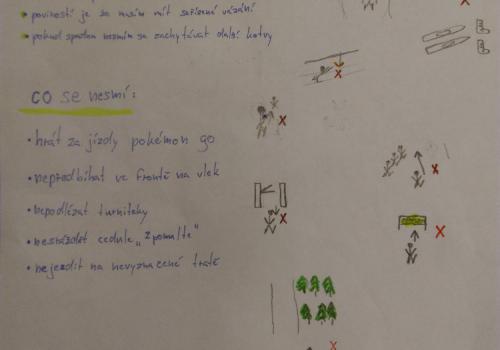 povinností je že musím mít seřízené vázání
pokud spadnu nesmím se zachytávat další kotvy
CO se nesmí:
hrát za jízdy pokémon go
nepředbíhat ve frontě na vlek
nepodlézat turnikety
nesrážet cedule „zpomalte"
nejezdit na nevyznačené tratě